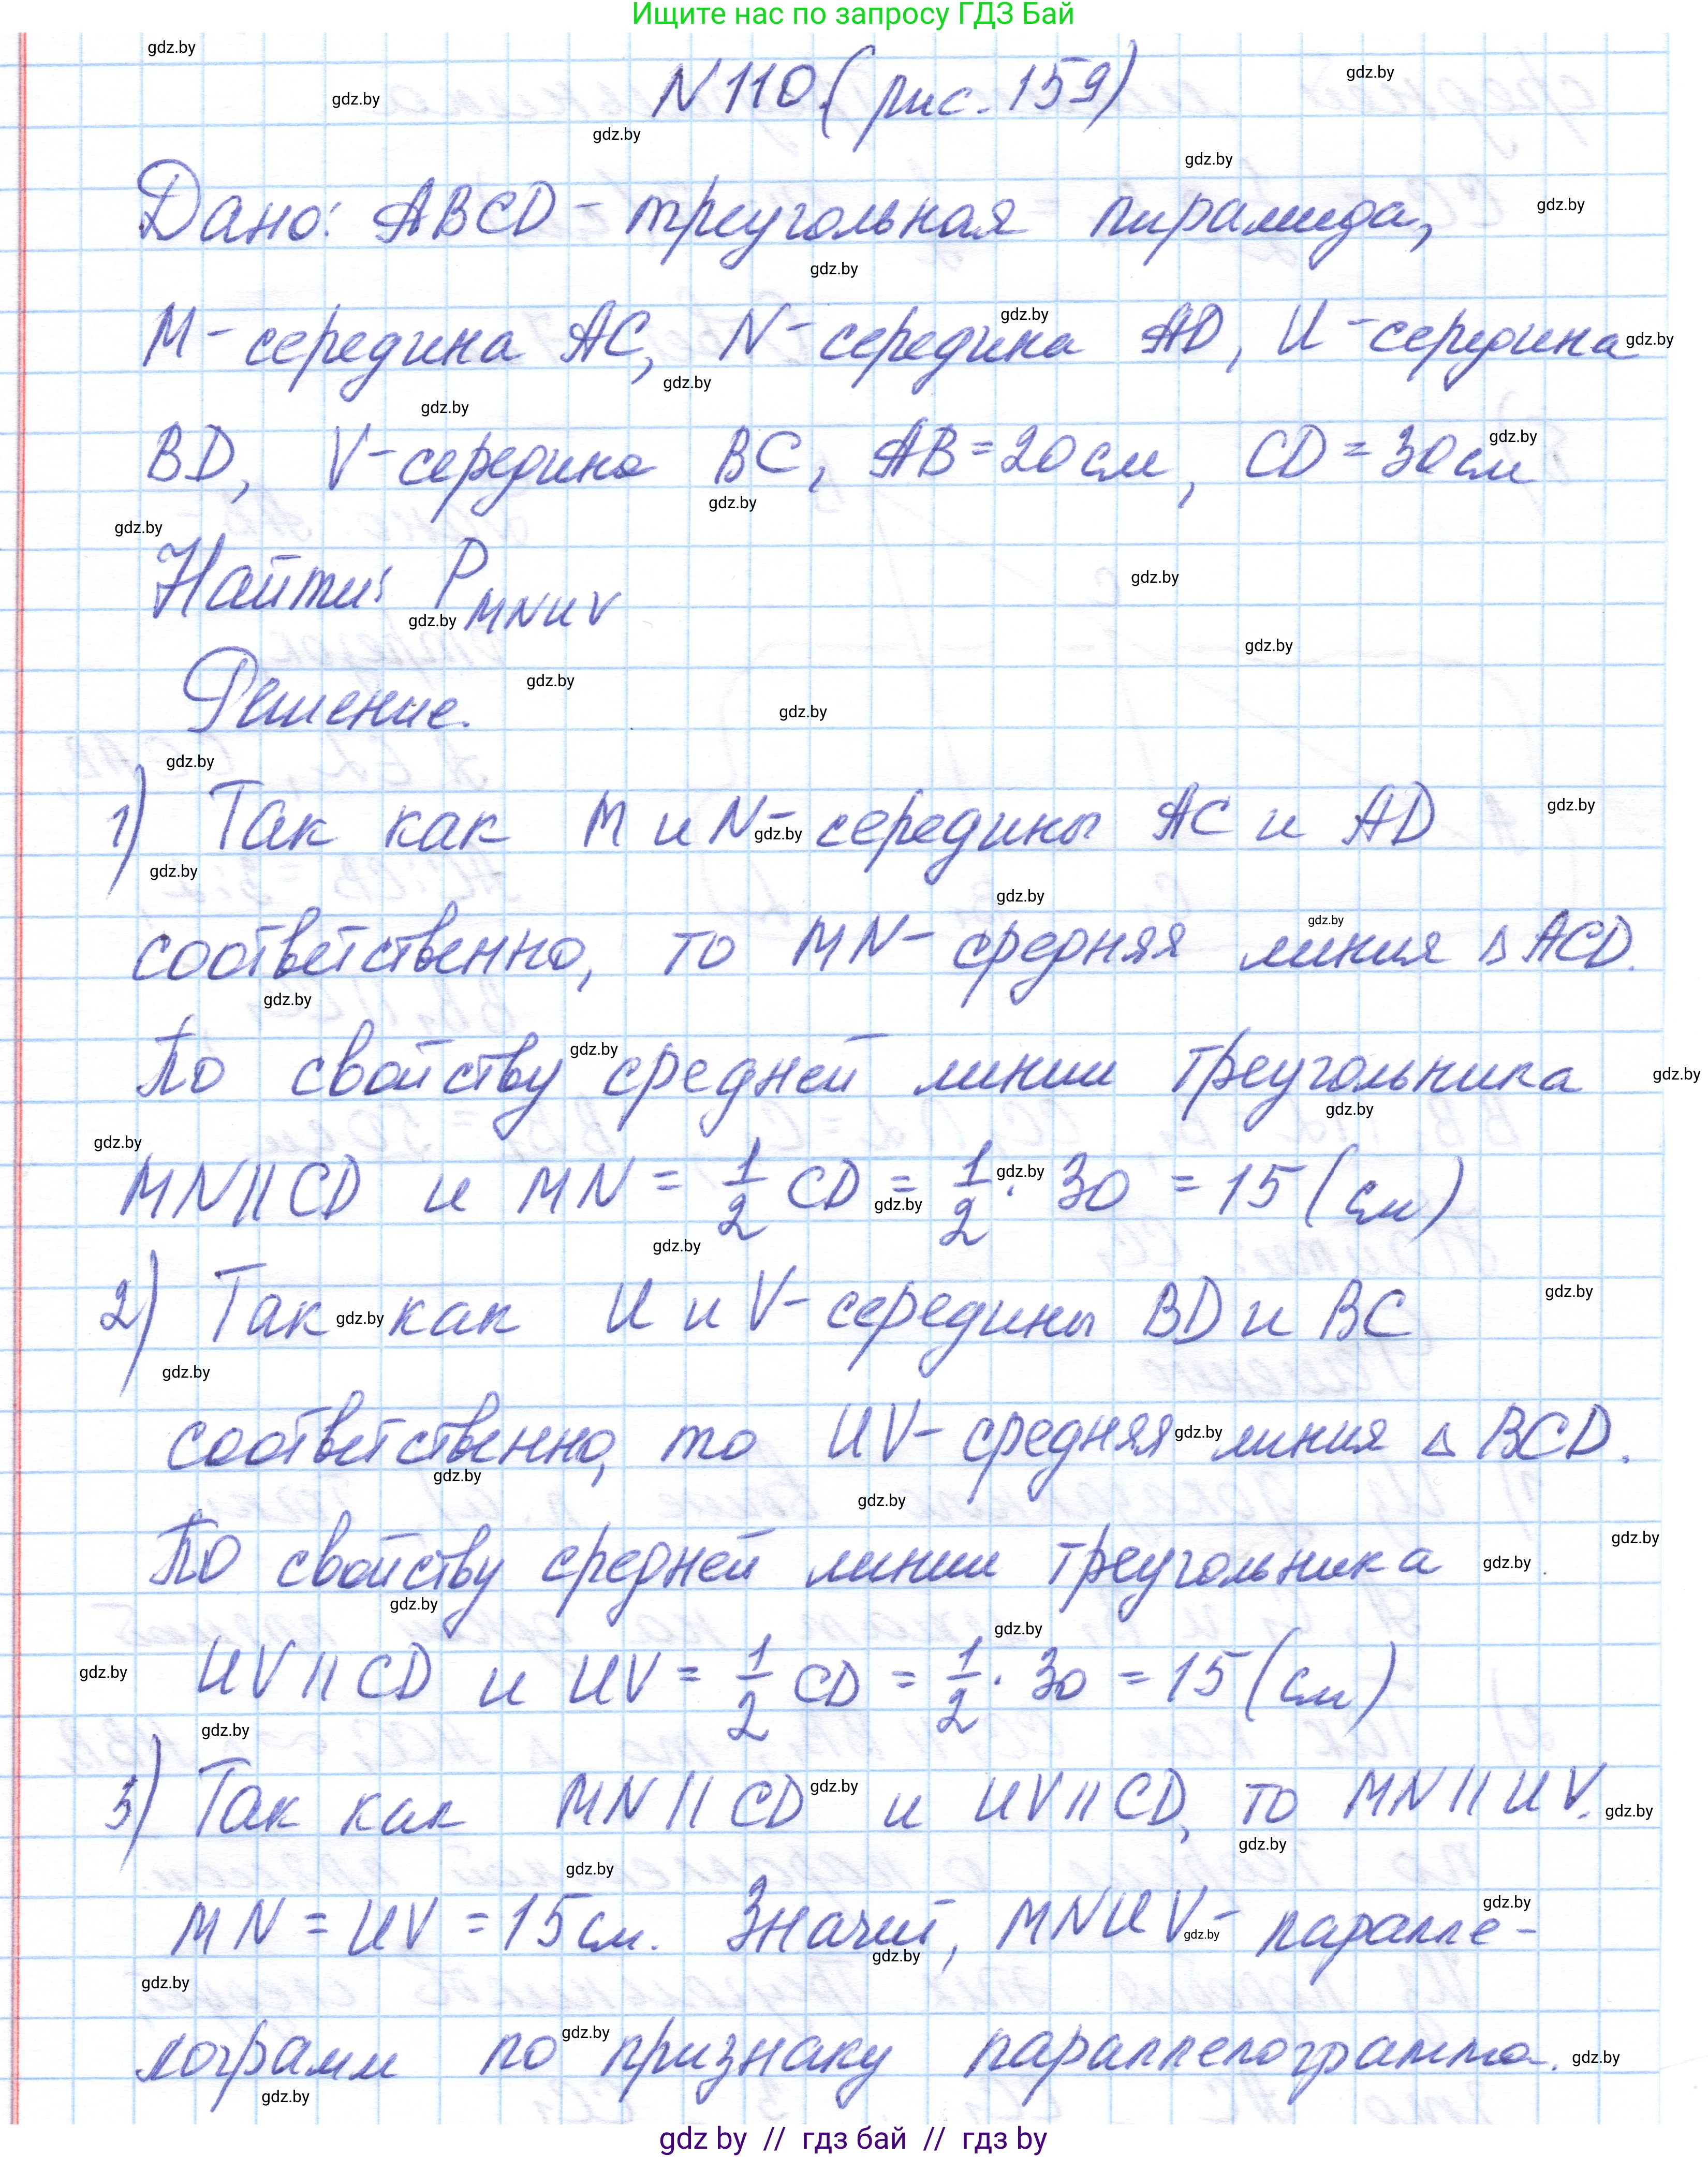 Ищите нас по запросу ГДЗ Бай
N 110 (рис. 159)
Дано: ABCD - треугольная пирамида,
M - середина AC, N - середина AD, U - середина
BD, V - середина BC, AB = 20 см, CD = 30 см
Найти: P MNUV
Решение.
1) Так как M и N - середины AC и AD
соответственно, то MN - средняя линия Δ ACD.
По свойству средней линии треугольника
MN || CD и MN = 1/2 CD = 1/2 · 30 = 15 (см)
2) Так как U и V - середины BD и BC
соответственно, то UV - средняя линия Δ BCD.
По свойству средней линии треугольника
UV || CD и UV = 1/2 CD = 1/2 · 30 = 15 (см)
3) Так как MN || CD и UV || CD, то MN || UV.
MN = UV = 15 см. Значит, MNUV - паралле-
лограмм по признаку параллелограмма.
gdz by // гдз бай // гдз by